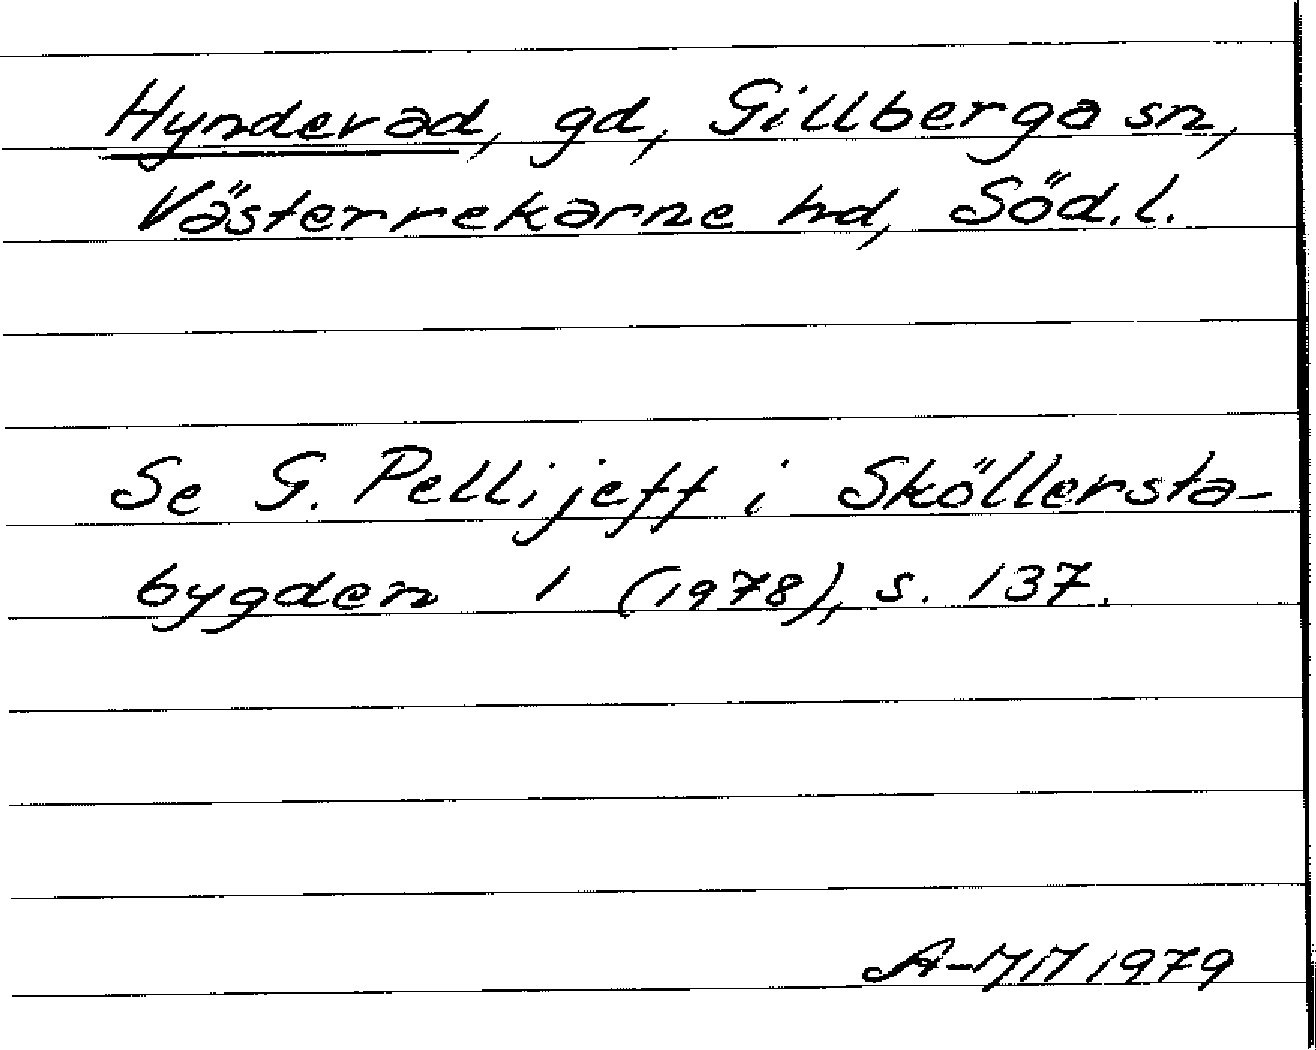 Hynderad, gd, Gillberga sn,
Västerrekarne hd, Söd.l.
Se G. Pellijeff i Sköllersta-
bygden 1 (1978), s. 137.
A-MM 1979